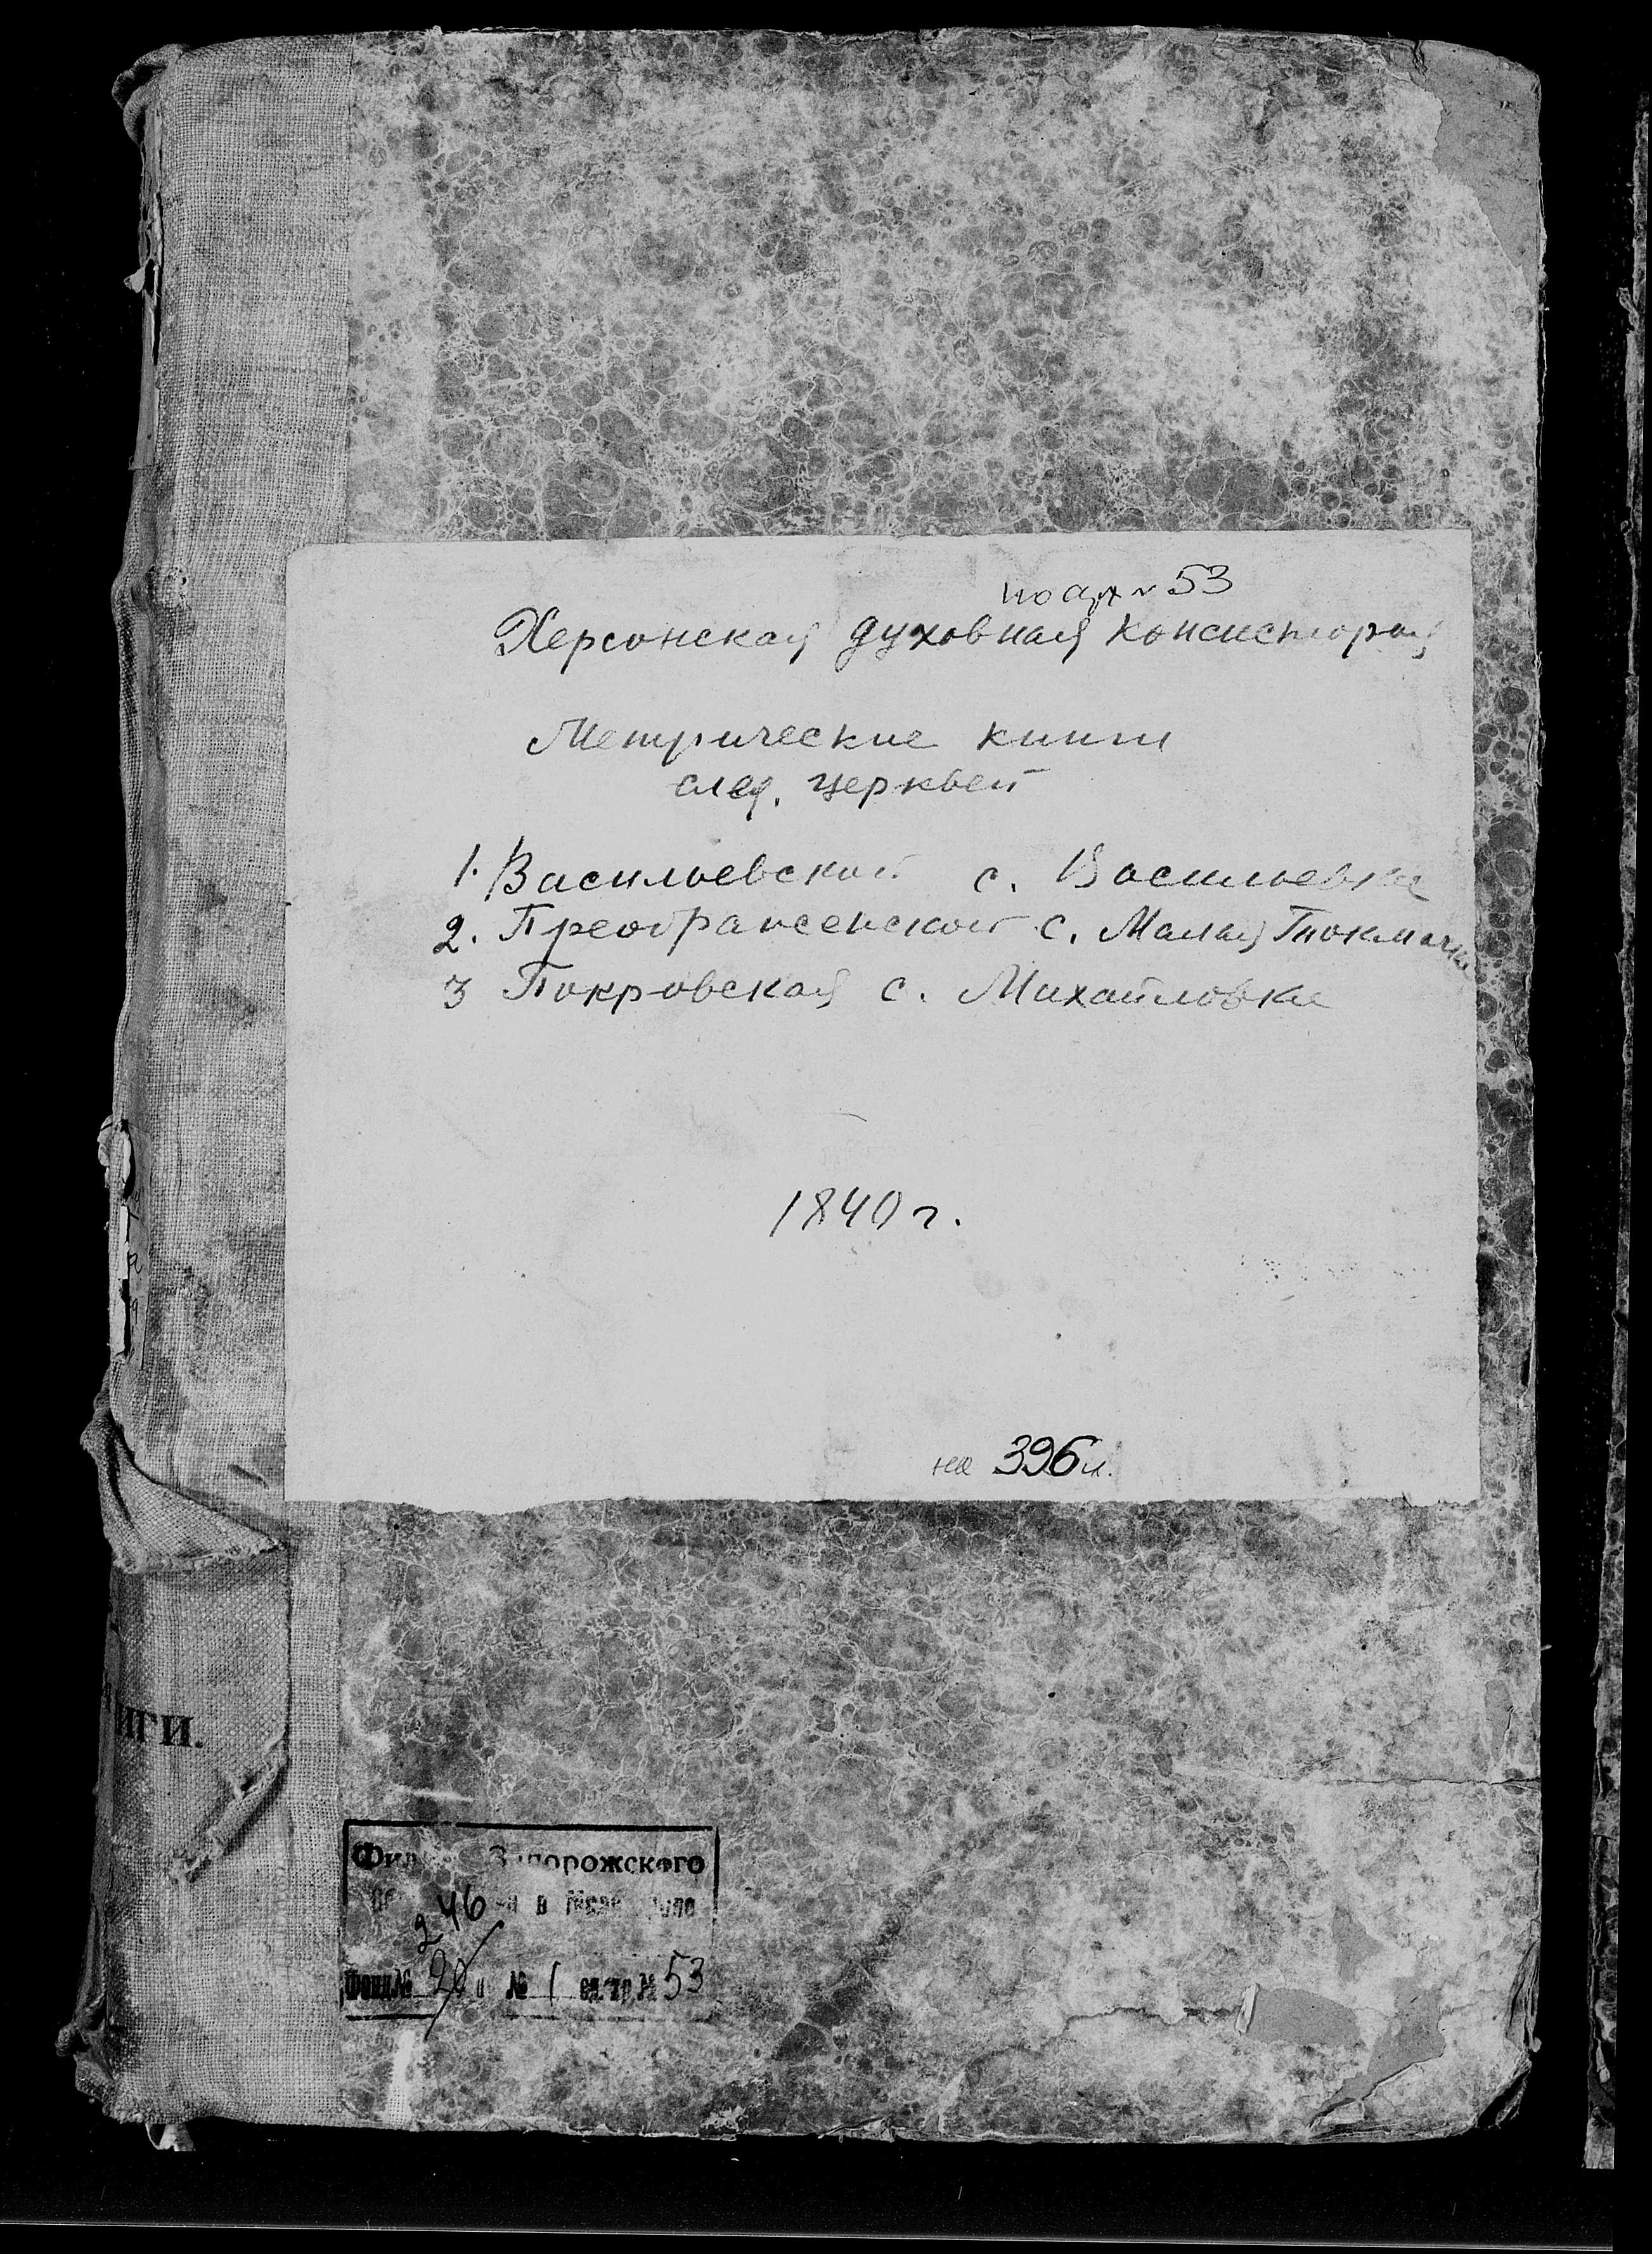 по арх № 53
Херсонская духовная консистория
Метрические книги
след. церквей
1. Васильевской с. Васильевка
2. Преображенской с. Малая Токмачка
3 Покровская с. Михайловка
1840 г.
на 396 л.
ИГИ.
Запорожского
246 в
Фонд № 20 № 1 ед. хр. № 53